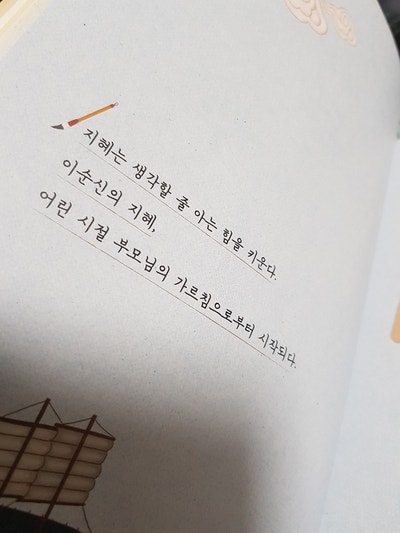 지혜는 생각할 줄 아는 힘을 키운다.
이순신의 지혜,
어린 시절 부모님의 가르침으로부터 시작되다.